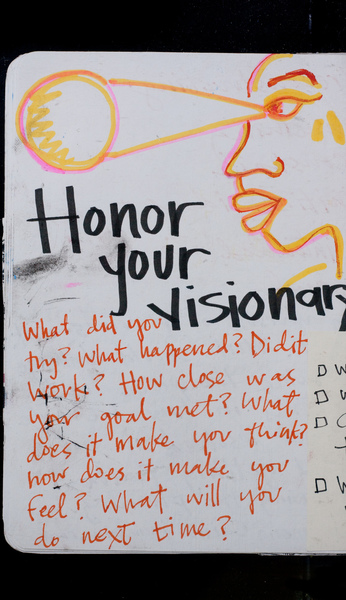 Honor
your
visionary
What did you
try? What happened? Did it
work? How close was
your goal met? What
does it make you think?
how does it make you
feel? What will you
do next time?